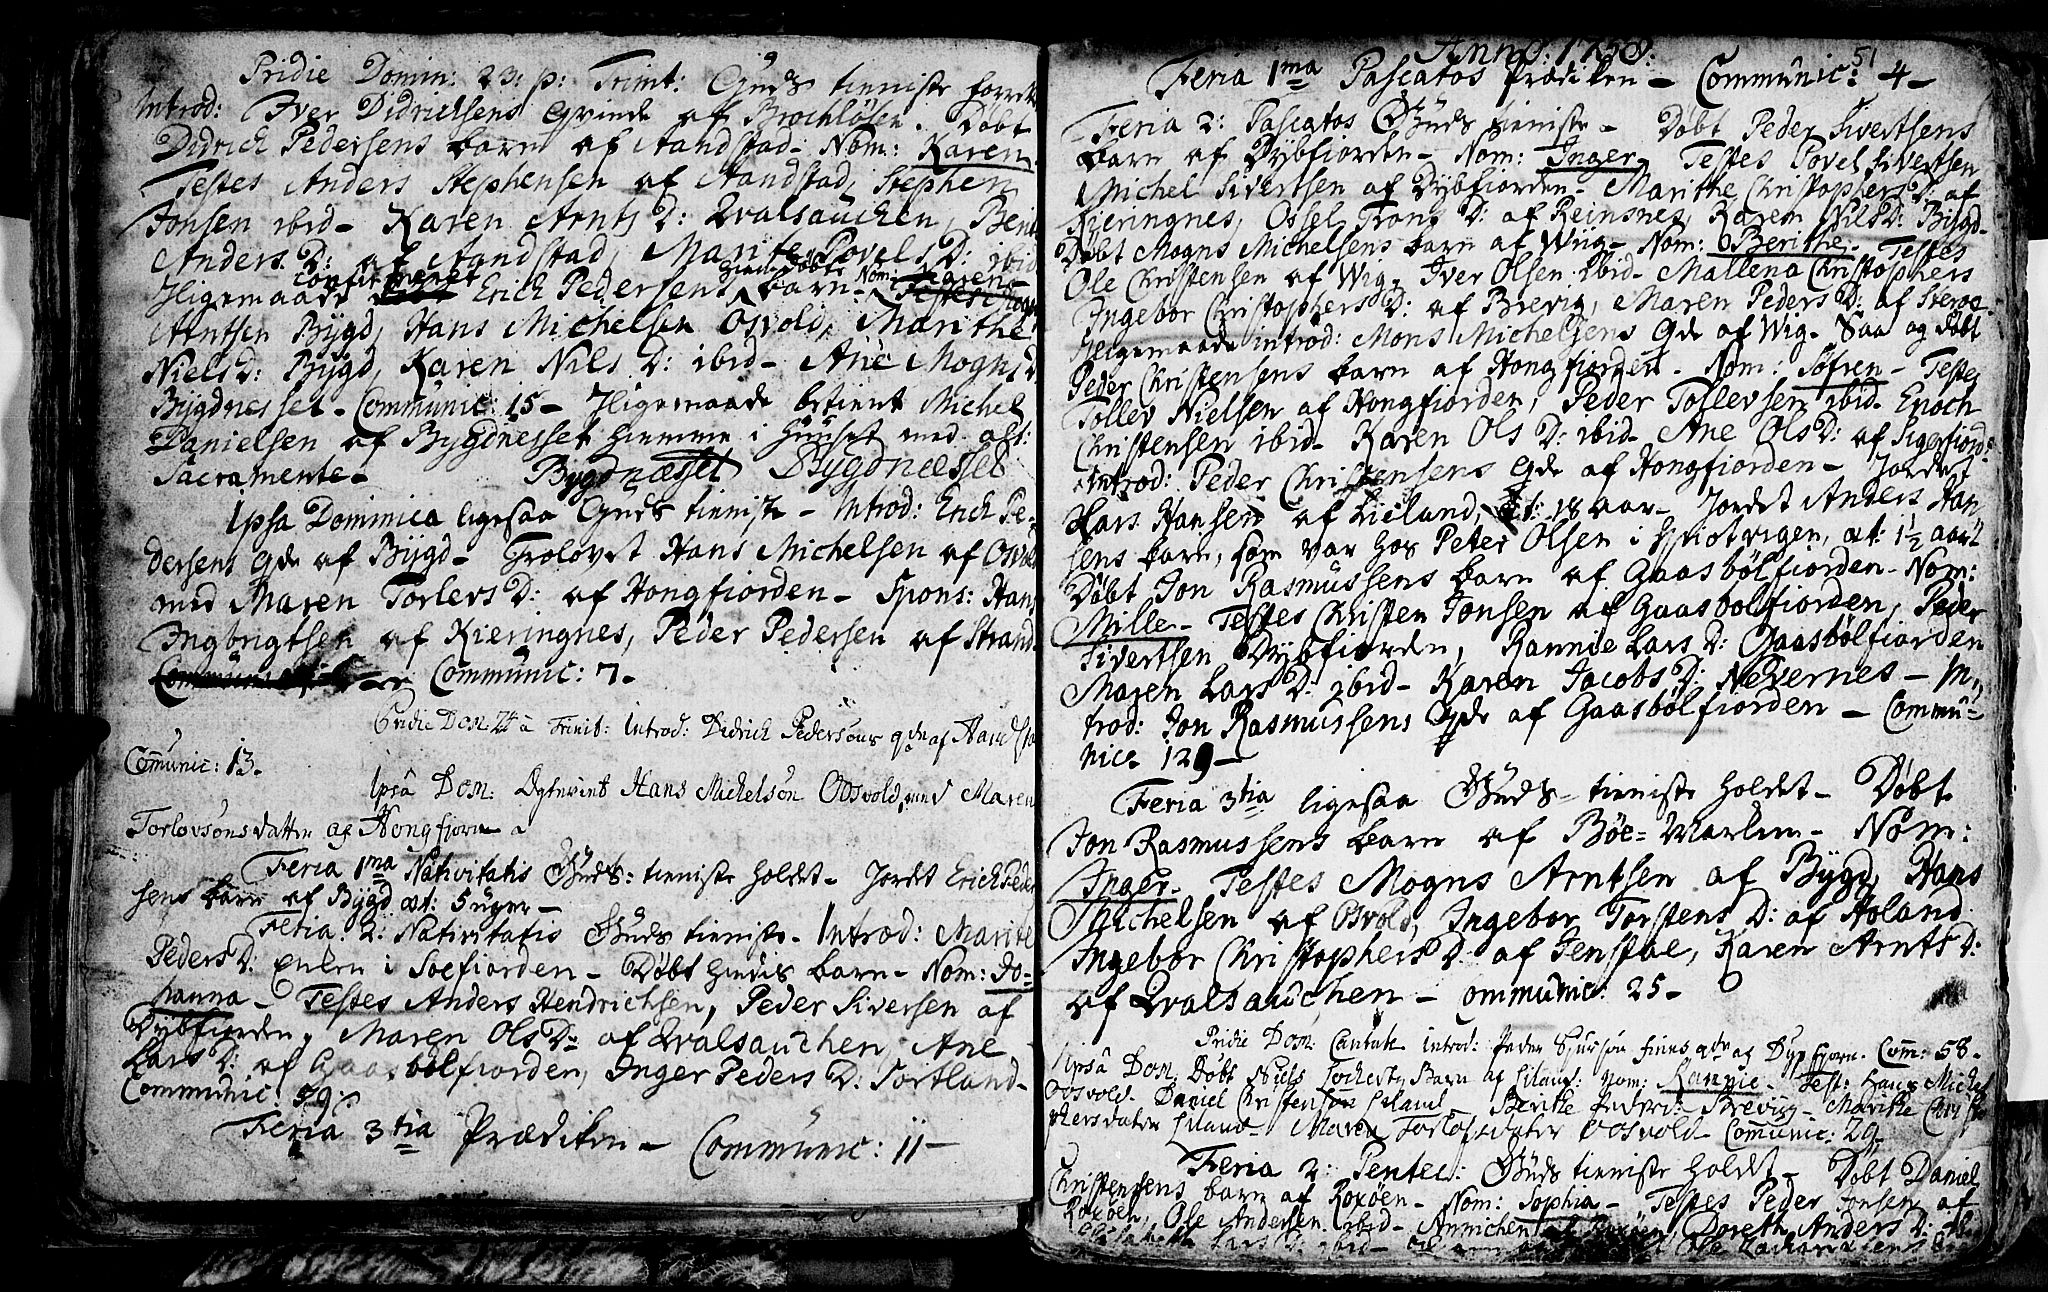 Pridie Domin: 23: p: Trinit: Guds tieniste forret
Introd: Iver Didrichsens Qvinde af Brochløsen. Døbt
Didrich Pedersens barn af Aandstad- Nom: Karen.
Testes Anders Stephensen af Aandstad, Stephen
Jonsen ibid- Karen ArntsD: Qvalsauchen, Berit
Anders D: af Aandstad, Marite PovelsD: ibid
Iligemaade Confirmeret Erich Pedersens hiemmedøbte barn- Nom:
Arntsen Bygd, Hans Michelsen Osvold, Marithe
NielsD: Bygd, Karen Nils D: ibid- Ane Mogns D
Bygdnesset- Communic: 15- Iligemaade betient Michel
Danielsen af Bygdnesset hiemme i Huuset med alt:
Sacramente- Bygdnæsset Bygdnæsset
Ipsa Dominica ligesaa Guds tieniste- Introd: Erich Pe-
dersens Qde af Bygd- Trolovet Hans Michelsen af Osvold
med Maren TorlevsD: af Hongfiorden- Spons: Hans
Ingbrigtsen af Kieringnes, Peder Pedersen af Strand-
Communic: 7-
Pridie Dom: 24 à Trinit: Introd: Didrich Pedersøns qde af Aandsta
Comunic: 13-
Ipsâ Dom: Ægteviet Hans Michelsøn Oosvold med Maren
Torlovsøns datter af Hongfjorn-
Feria 1ma Nativitatis Guds: tieniste holdet- Jordet Erich Peder
sens barn af Bygd æt: 5 uger-
Feria: 2: Nativitatis Guds tieniste- Introd: Marite
PedersD: Enken i Soefiorden- Døbt hendis barn- Nom: Jo-
hanna- Testes Anders Hendrichsen, Peder Siversen af
Dybfiorden, Maren OlsD: af Qvalsauchen, Ane
Lars D: af Gaasbølfiorden, Inger Peders D: Sortland-
Communic: 59:
Feria 3tia Prædiken- Communic: 11-
Anno: 1758: 51
Feria 1ma Pascatos Prædiken- Communic: 4-
Feria 2: Pascatos Guds tieniste- Døbt Peder Sivertsens
barn af Dybfiorden- Nom: Inger- Testes Povel Sivertsen
Michel Sivertsen af Dybfiorden- Marithe ChristophersD: af
Kieringnes, Ossel Trons D: af Reinsnes, Karen NilsD: Bygd-
Døbt Mogns Michelsens barn af Wiig- Nom: Berithe- Testes
Ole Christensen af Wig, Iver Olsen ibid- Mallena Christophers
Ingebor ChristophersD: af Brevig, Maren PedersD: af
Iligemaade introd: Mons Michelsens Qde af Wig- Saa og døbt
Peder Christensens barn af Hongfiorden- Nom: Søfren- Testes
Tollev Nielsen af Hongfiorden, Peder Tollevsen ibid- Enoch
Christensen ibid- Karen Ols D: ibid- Ane OlsD: af Sigerfiord:
Introd: Peder Christensens Qde af Hongfiorden- Jordet
Lars Hansen af Liland, æt: 18 aar- Jordet Anders Han
sens barn, som var hos Peter Olsen i, æt: 1½ aar-
Døbt Jon Rasmussens barn af Gaasbølfiorden- Nom:
Mille- Testes Christen Jonsen af Gaasbølfiorden, Peder
Sivertsen Dybfiorden, Rannie Lars D: Gaasbølfiorden
Maren Lars D: ibid- Karen Jacobs D: Nevernes- In-
trod: Jon Rasmussens Qde af Gaasbølfiorden- Commu-
nic: 129-
Feria 3tia ligesaa Guds-tieniste holdet- Døbt
Jon Rasmussens barn af Bøe-Marken- Nom:
Inger- Testes Mogns Arntsen af Bygd, Hans
Michelsen af Osvold, Ingebor Torstens D: af Holand
Ingebor Christophers D: af Jenstae, Karen Arnts D:
af Qvalsauchen- ommunic: 25-
Pridie Dom: Cantate Introd: Peder Sjursøn Finns qde af Dypfjorn- Com: 58-
Ipsâ Dom: Døbt Niels Locherts Barn af Liland: Nom: Rannie- Test: Hans Michel
Oosvold- Daniel Christensøn Liland- Berithe Peders D: Breviig- Marithe Christo
phersdatter Liland- Maren Torlofsdatter Oosvold- Comunic: 29-
Feria 2: Pentec: Guds tieniste holdet- Døbt Daniel
Christensens barn af Roxøen- Nom: Sophia- Testes Peder Jonsen af
Roxøen, Ole Andersen ibid- Annichen af Roxøen, Doreth Anders D:
Lars D: ibid- Ole Zachariasens